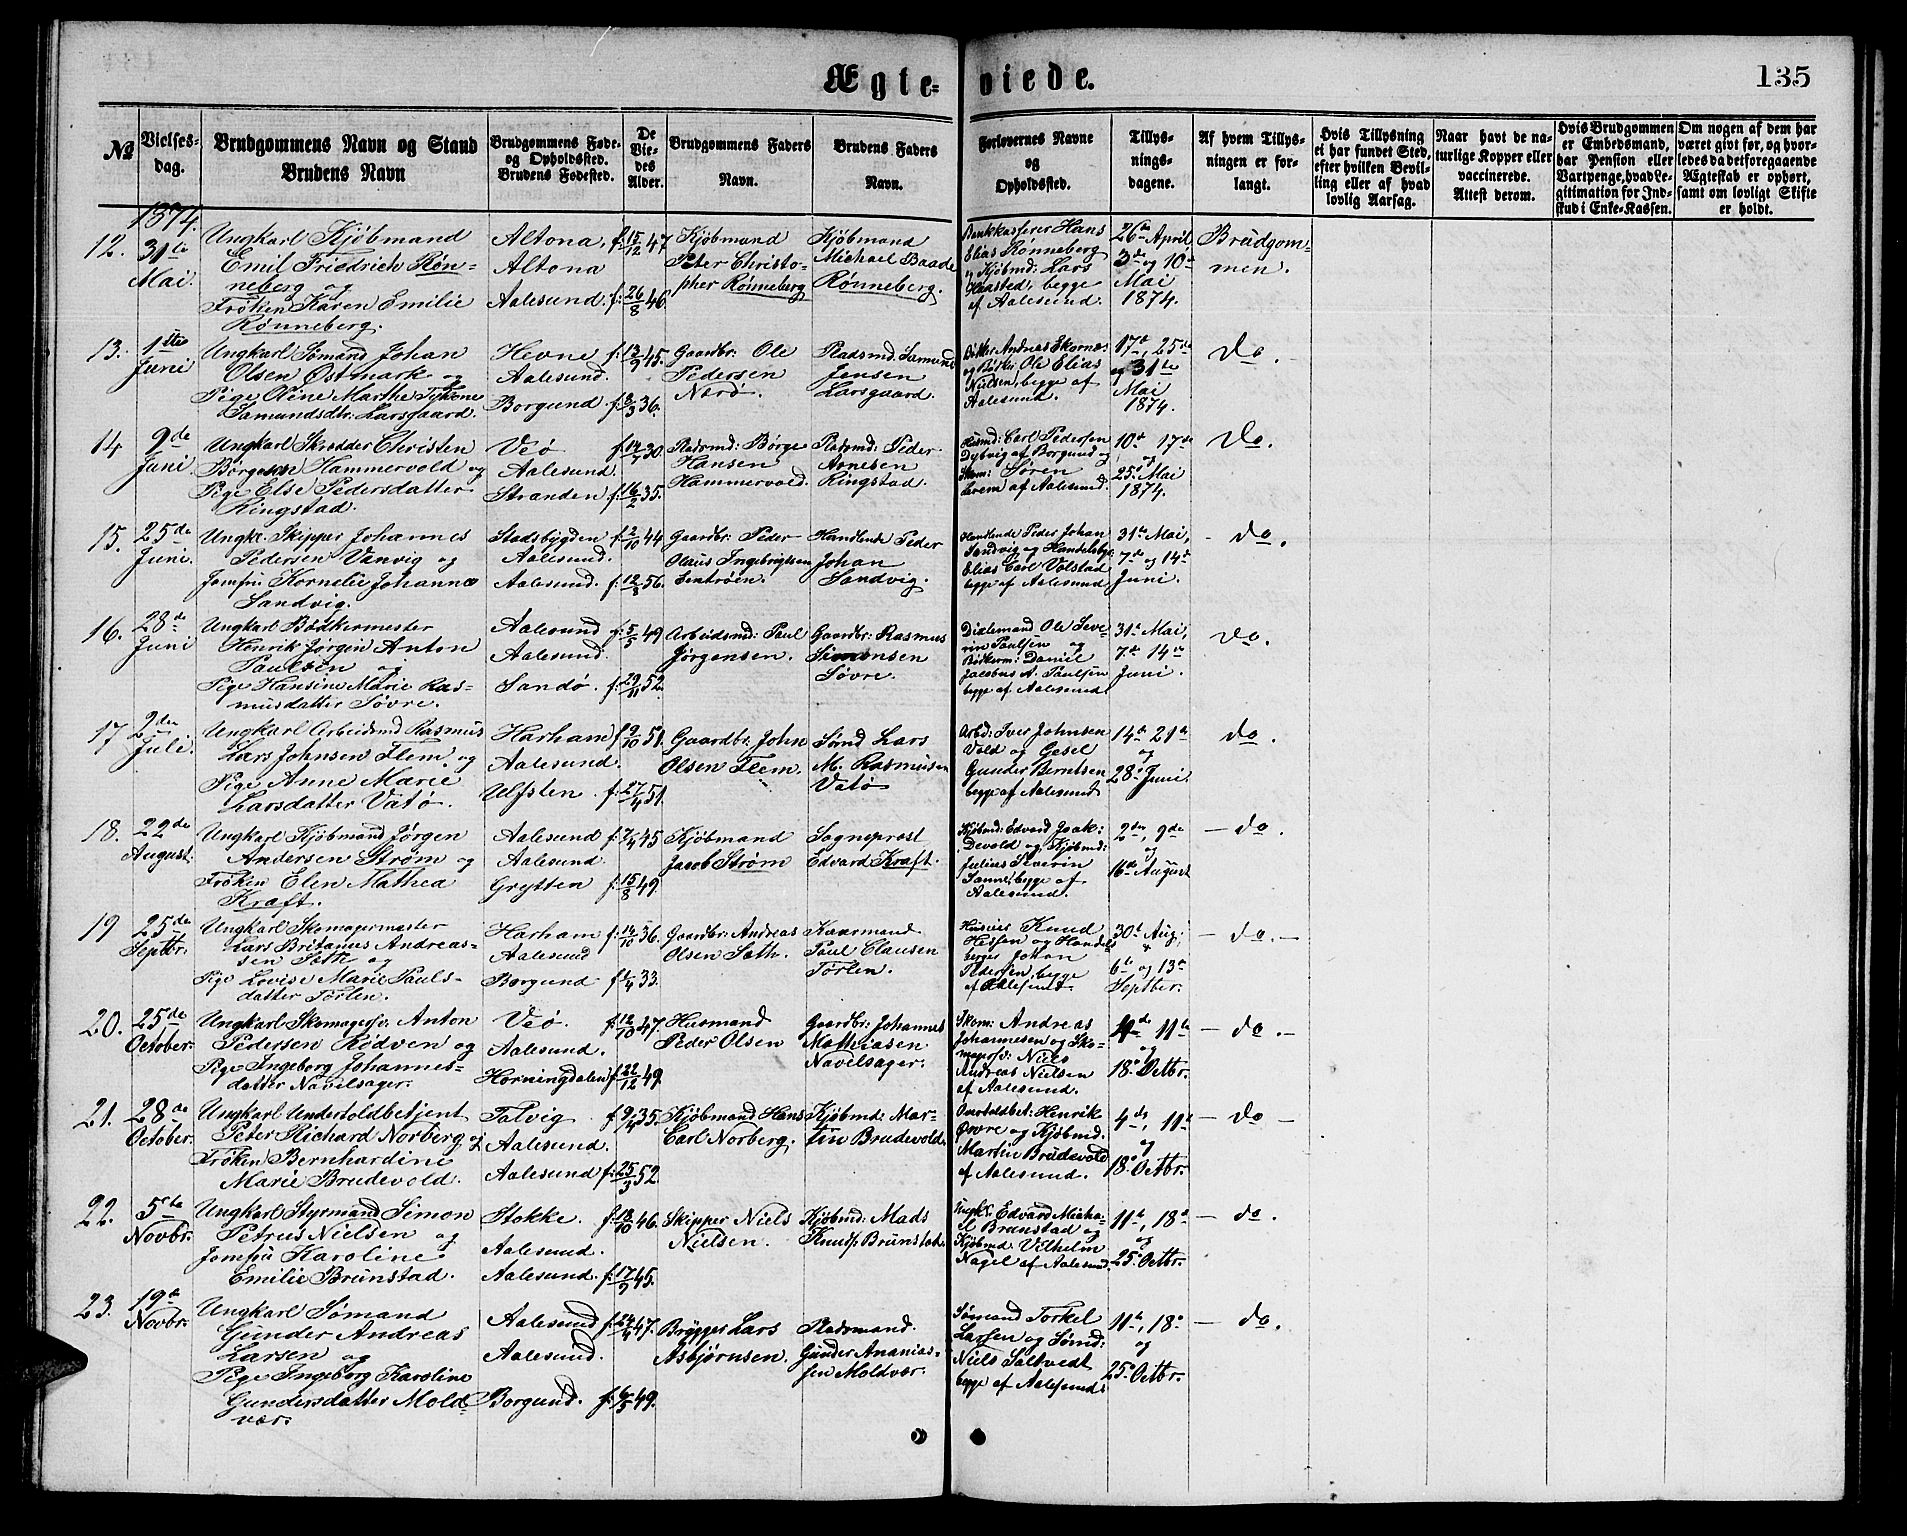 Ægte-
viede.
135
No
Vielses-
dag.
Brudgommens Navn og Stand
Brudens Navn
Brudgommens Føde-
og Opholdssted.
Brudens Fødested.
De
Vie-
des
Alder.
Brudgommens Faders
Navn.
Brudens Faders
Navn.
Forlovernes Navne
og
Opholdssted.
Tillys-
nings-
dagene.
Af hvem Tillys-
ningen er for-
langt.
Hvis Tillysning
ei har fundet Sted,
efter hvilken Bevil-
ling eller af hvad
lovlig Aarsag.
Naar havt de na-
turlige Kopper eller
vaccinerede.
Attest derom.
Hvis Brudgommen
er Embedsmand,
har Pension eller
Vartpenge, hvad Le-
gitimation for Ind-
skud i Enke-Kassen.
Om nogen af dem har
været gift før, og hvor-
ledes da det foregaaende
Ægteskab er ophørt,
samt om lovligt Skifte
er holdt.
1874.
12.
31te
Mai.
Ungkarl Kjøbmand
Emil Friedrich Røn-
neberg og
Frøken Karen Emilie
Rønneberg.
Altona,
Altona
Aalesund
f. 15/12 47
f. 26/8 46.
Kjøbmand
Peter Christo-
pher Rønneberg
Kjøbmand
Michael Baade
Rønneberg.
Bankkasserer Hans
Elias Rønneberg
og Kjøbmd: Lars
begge
af Aalesund.
26de April
3de og 10de
Mai
1874.
Brudgom-
men.
13.
1ste
Juni
Ungkarl Sømand Johan
Olsen Østmark og
Pige Oline Marthe
Samundsdtr. Larsgaard.
Hevne
Aalesund.
Borgund.
f. 13/9 45.
f. 8/3 36.
Gaardbr. Ole
Pedersen
Nørø.
Pladsmd. Samund
Jensen
Larsgaard.
Bøtker Andreas Skornæs
og Bøtker Ole Elias
Nielsen, begge af
Aalesund.
17de, 25de
og 31te
Mai
1874.
Do.
14
9de
Juni.
Ungkarl Skrædder Christen
Børgesen Hammervold og
Pige Else Pedersdatter
Ringstad.
Veø
Aalesund.
Stranden
f. 14/7 30.
f. 16/2 35.
Pladsmd: Børge
Hansen
Hammervold.
Pladsmd. Peder
Arnesen
Ringstad.
Husmd: Carl Pedersen
Dybvig af Borgund og
Skom: Søren
af Aalesund.
10de 17de
og
25de Mai
1874.
Do.
15.
25de
Juni.
Ungk. Skipper Johannes
Pedersen Vanvig og
Jomfru Kornelie Johanne
Sandvig.
Stadsbygden
Aalesund.
Aalesund.
f. 2/10 44
f. 12/8 56.
Gaardbr: Peder
Olaus Ingebrigtsen
Handlende Peder
Johan
Sandvig.
Handlende Peder Johan
Sandvig og Handelsbg.
Elias Carl Volstad
begge af Aalesund
31te Mai,
7de og 14de
Juni.
do.
16.
28de
Juni
Ungkarl Bødkermester
Henrik Jørgen Anton
Paulsen og
Pige Hansine Marie Ras-
musdatter Søvre.
Aalesund
Aalesund.
Sandø.
f. 5/5 49
f. 29/11 52.
Arbeidsmd: Paul
Jørgensen.
Gaardbr: Rasmus
Simonsen
Søvre.
Dixlemand Ole Seve-
rin Paulsen og
Bødkerm: Daniel
Jacobus A. Paulsen
begge af Aalesund.
31te Mai,
7de 14de
Juni.
do.
17
2den
Juli.
Ungkarl Arbeidsmd Rasmus
Lars Johnsen Flem, og
Pige Anne Marie
Larsdatter Vatø.
Harham
Aalesund.
Ulfsten
f. 9/10 51.
f. 27/4 51.
Gaardbr. John
Olsen Flem.
Sømd Lars
M. Rasmusen
Vatø
Arbd: Iver Johnsen
Vold og Gesel
Gunder Berntsen
begge af Aalesund
14de 21de
og
28de Juni.
do.
18.
22de
August.
Ungkarl Kjøbmand Jørgen
Andersen Strøm og
Frøken Elen Mathea
Kraft.
Aalesund
Aalesund.
Grytten
f. 7/4 45
f. 15/8 49.
Kjøbmand
Jacob Strøm
Sogneprest
Edvard Kraft.
Kjøbmd: Edvard Joak:
Devold og Kjøbmd:
Julius Severin
begge af
Aalesund.
2den, 9de
og
16de August
do.
19
25de
Septbr.
Ungkarl Skomagermester
Lars Britanus Andreas-
sen Sæth og
Pige Lovise Marie Pauls-
datter Tørlen.
Harham
Aalesund
Borgund
f. 14/10 36.
f. 1/4 33.
Gaardbr: Andreas
Olsen Sæth.
Kaarmand
Paul Clausen
Tørlen.
Huseier Knud
Hessen og Handels
berger Johan
Pedersen, begge
af Aalesund.
30te Aug;
6te og 13de
Septber.
do.
20.
25de
October.
Ungkarl Skomagersv. Anton
Pedersen Rødven og
Pige Ingeborg Johannes-
datter Navelsager.
Veø.
Aalesund.
Horningdalen
f. 12/10 47.
f. 22/12 49.
Husmand
Peder Olsen
Gaardbr: Johannes
Mathiasen
Navelsager.
Skom: Andreas
Johannesen og Sko-
magersv: Niels
Andreas Nielsen
af Aalesund.
4de 11te
og
18de Octbr.
do.
21.
28de
October.
Ungkarl Undertoldbetjent
Peter Richard Norberg og
Frøken Bernhardine
Marie Brudevold.
Talvig
Aalesund.
Aalesund
f. 9/4 35.
f. 25/3 52
Kjøbmand Hans
Carl Norberg.
Kjøbmd: Mar-
tin Brudevold.
Overtoldbet: Henrik
Øvre og Kjøbmd.
Martin Brudevold
af Aalesund.
4de, 11te
og
18de Octbr.
do
22.
5te
Novbr.
Ungkarl Styrmand Simon
Petrus Nielsen og
Jomfru Karoline
Emilie Brunstad.
Stokke.
Aalesund.
Aalesund.
f. 18/10 46.
f. 17/9 45.
Skipper Niels
Nielsen.
Kjøbmd: Mads
Knuds: Brunstad.
Ungk. Edvard Micha-
el Brunstad og
Kjøbmd. Vilhelm
Nagel af Aalesund.
11te, 18de
og
25de Octbr.
do.
23.
19de
Novbr.
Ungkarl Sømand
Gunder Andreas
Larsen og
Pige Ingeborg Karoline
Gundersdatter Mold-
vær.
Aalesund
Aalesund.
Borgund.
47.
49.
Brygger Lars
Asbjørnsen.
Pladsmand
Gunder Ananias-
sen Moldvær.
Sømand Torkel
Larsen og Sømd:
Niels Saltvedt
begge af Aalesund
11te, 18de
og
25de Octbr.
do.